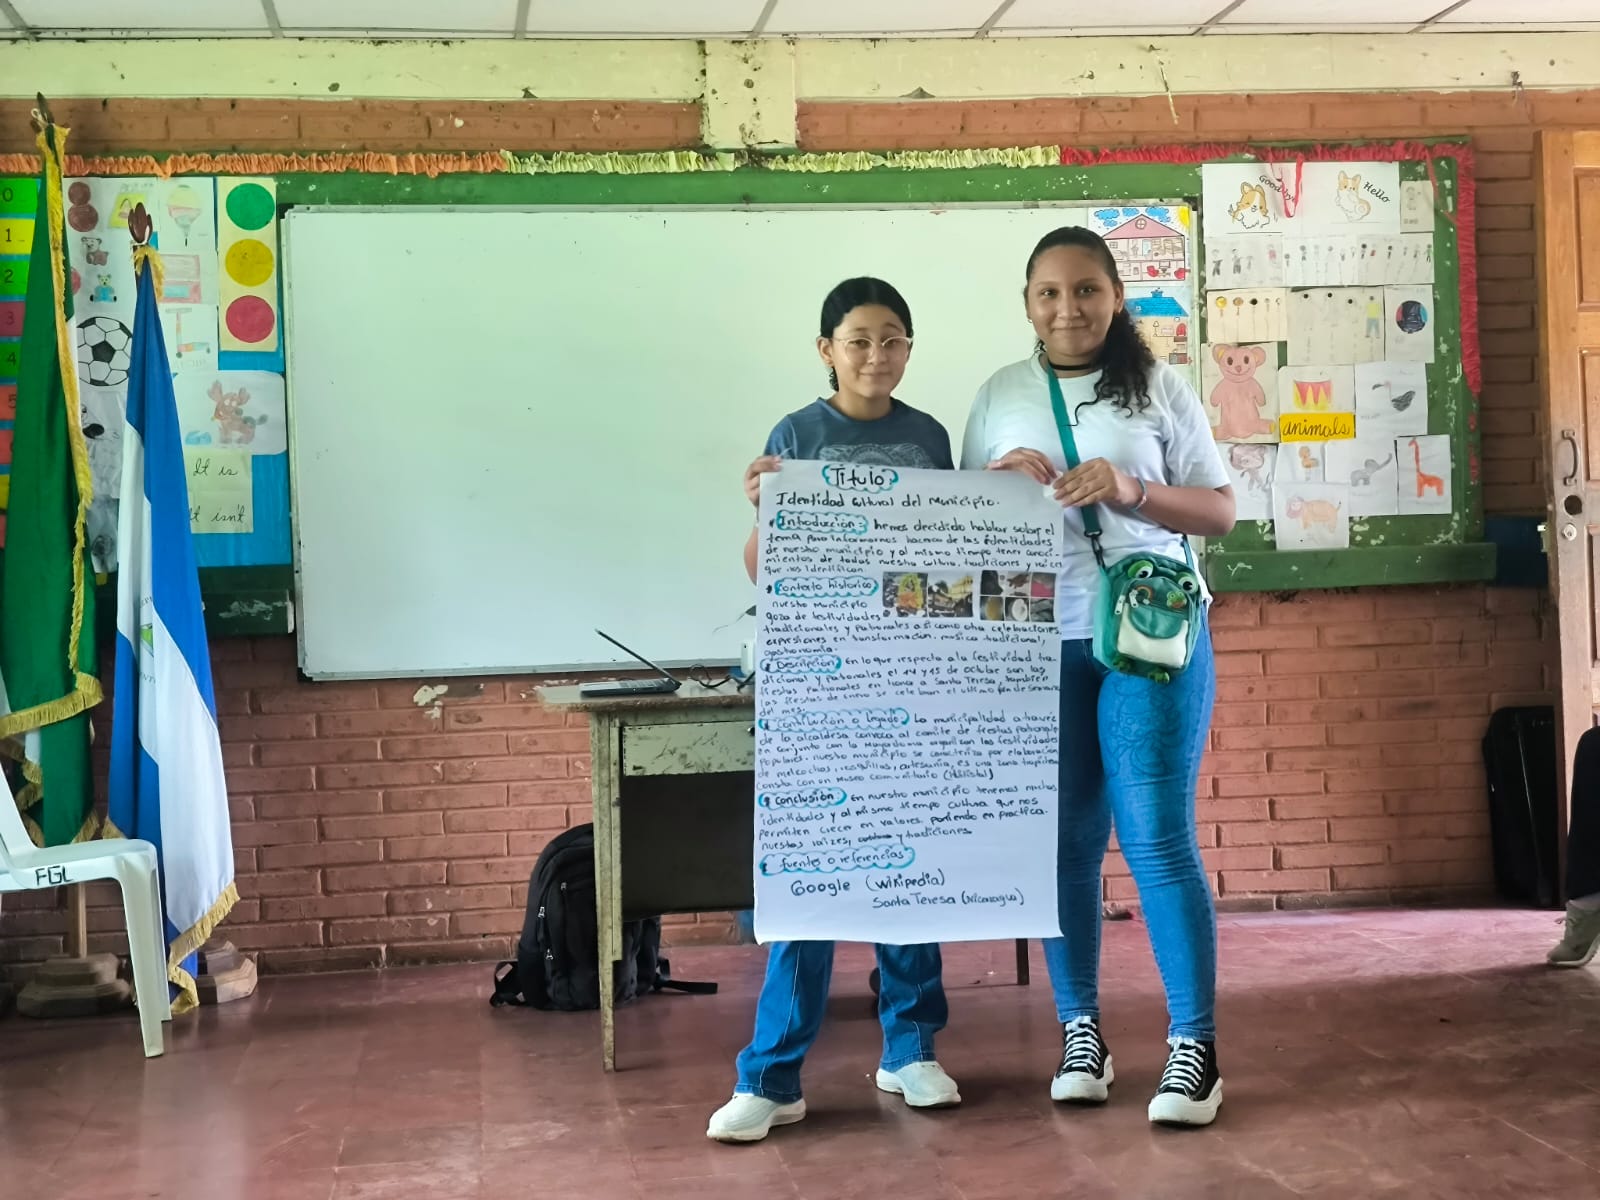 0
1
2
3
4
5
It is
It isn't
Goodbye
Hello
animals
FGL
Título
Identidad Cultural del Municipio.
Introducción: hemos decidido hablar sobre el
tema para informarnos hacerca de las identidades
de nuestro municipio y al mismo tiempo tener conoci-
mientos de todas nuestra cultura, tradiciones y raíces
que nos identifican.
Contexto historico
nuestro municipio
goza de festividades
tradicionales y patronales así como otra celebraciones,
expresiones en transformación. musica tradicional,
gastronomía.
Descripción: En lo que respecta a la festividad tra-
dicional y patronales el 14 y 15 de octubre son las
fiestas patronales en honor a Santa Teresa, también
las fiestas de enero se celebran el ultimo fin de semana
del mes.
Contribución o legado: La municipalidad a través
de la alcaldesa convoca al comite de fiestas patronales
en conjunto con la Mayordoma organizan las festividades
populares. nuestro municipio se caracteriza por elaboración
de melcochas, rosquillas, artesanía, es una zona tropical
consta con un museo comunitario
Conclusión En nuestro municipio tenemos muchas
identidades y al mismo tiempo cultura que nos
permiten crecer en valores. poniendo en practica.
nuestras raízes, y tradiciones
fuentes o referencias
Google (wikipedia)
Santa Teresa (Nicaragua)